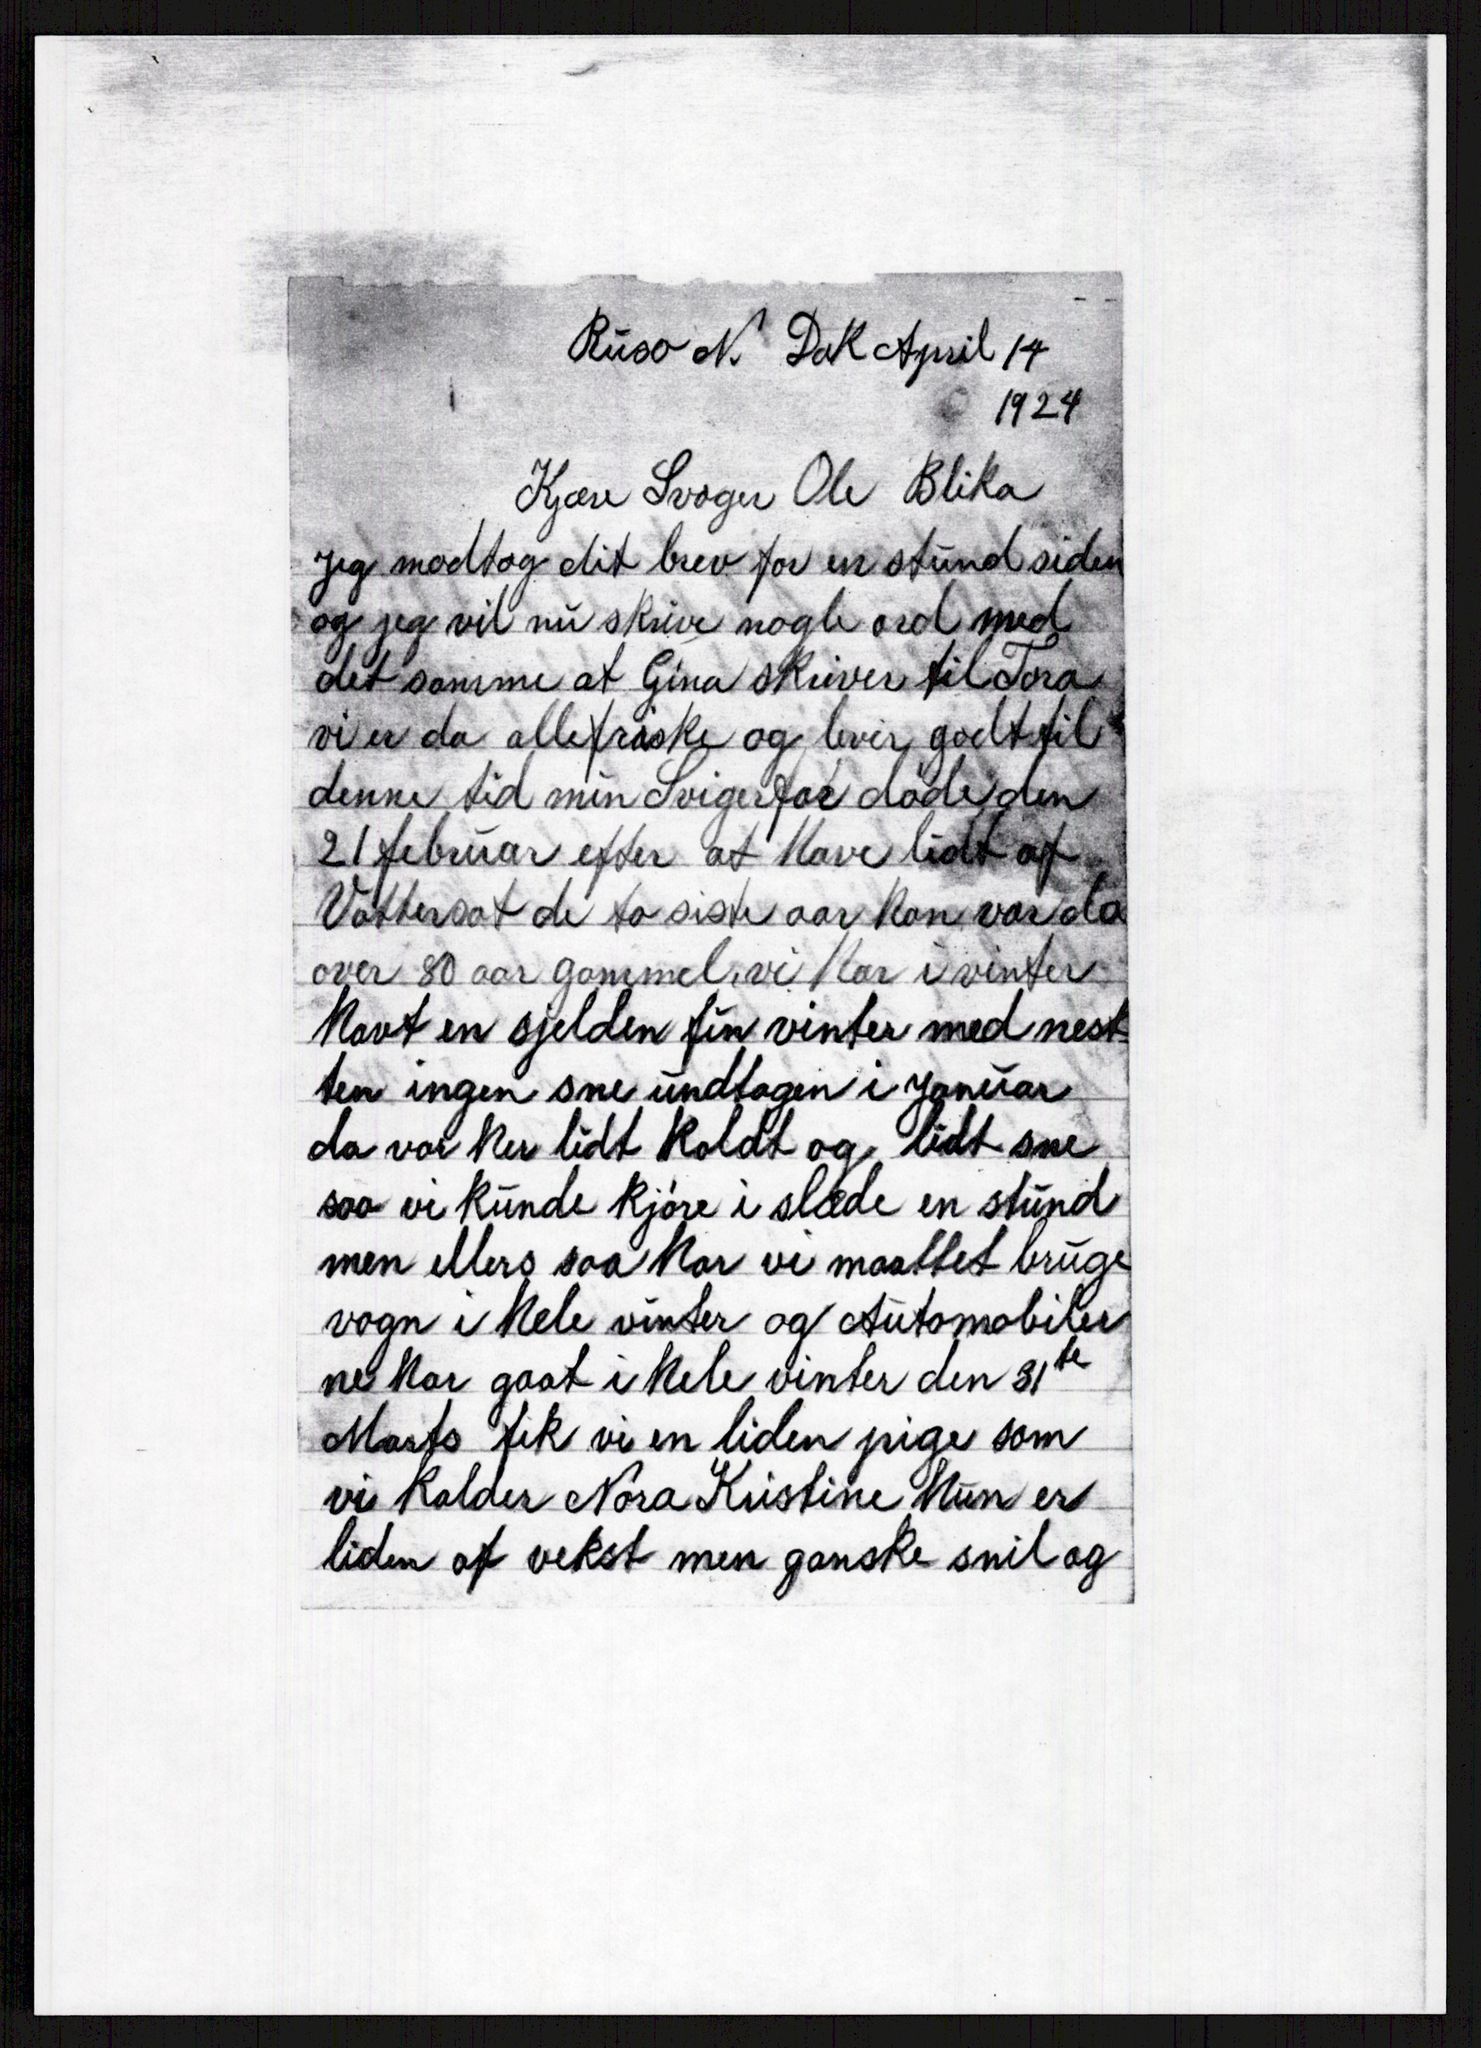 Ruso N. Dak April 14
1924
Kjære Svoger Ole Blika
Jeg modtog dit brev for en stund siden
og jeg vil nu skrive nogle ord med
det samme at Gina skriver til Tora
vi er da alle friske og lever godt til
denne tid min Svigerfar døde den
21 februar efter at have lidt af
Vattersot de to siste aar han var da
over 80 aar gammel. vi har i vinter
havt en sjelden fin vinter med nest-
ten ingen sne undtagen i Januar
da var her lidt koldt og lidt sne
saa vi kunde kjøre i slæde en stund
men ellers saa har vi maattet bruge
vogn i hele vinter og Automobiler
ne har gaat i hele vinter den 31te
Marts fik vi en liden pige som
vi kalder Nora Kristine hun er
liden af vekst men ganske snil og